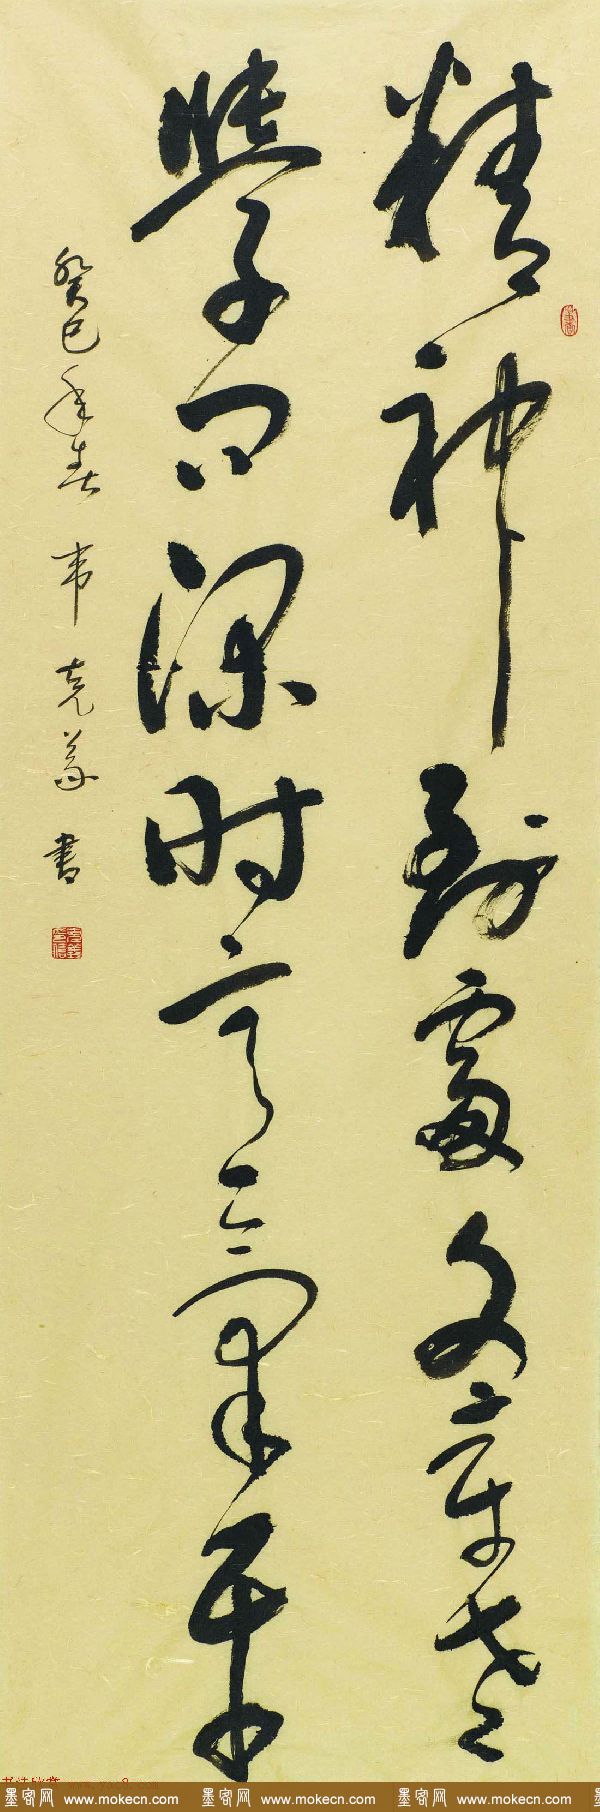 精神到處文章老
學问深时意氣平
癸巳年春 韦克義 書
墨客网 www.mokecn.com 墨客网 www.mokecn.com 墨客网 www.mokecn.com